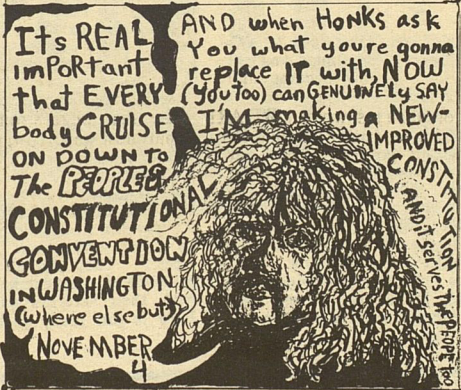 Its REAL
imPoRtant
that EVERY
body CRUISE
ON DOWN to
The PEOPLES
CONSTITUTIONAL
CONVENTION
IN WASHINGTON
(where else but)
NOVEMBER
4
AND when HONKS ask
You what youre gonna
replace IT with, NOW
(You too) can GENUINELY SAY
I'M making a NEW-
IMPROVED
CONSTITUTION
AND it serves THE PEOPLE TOO